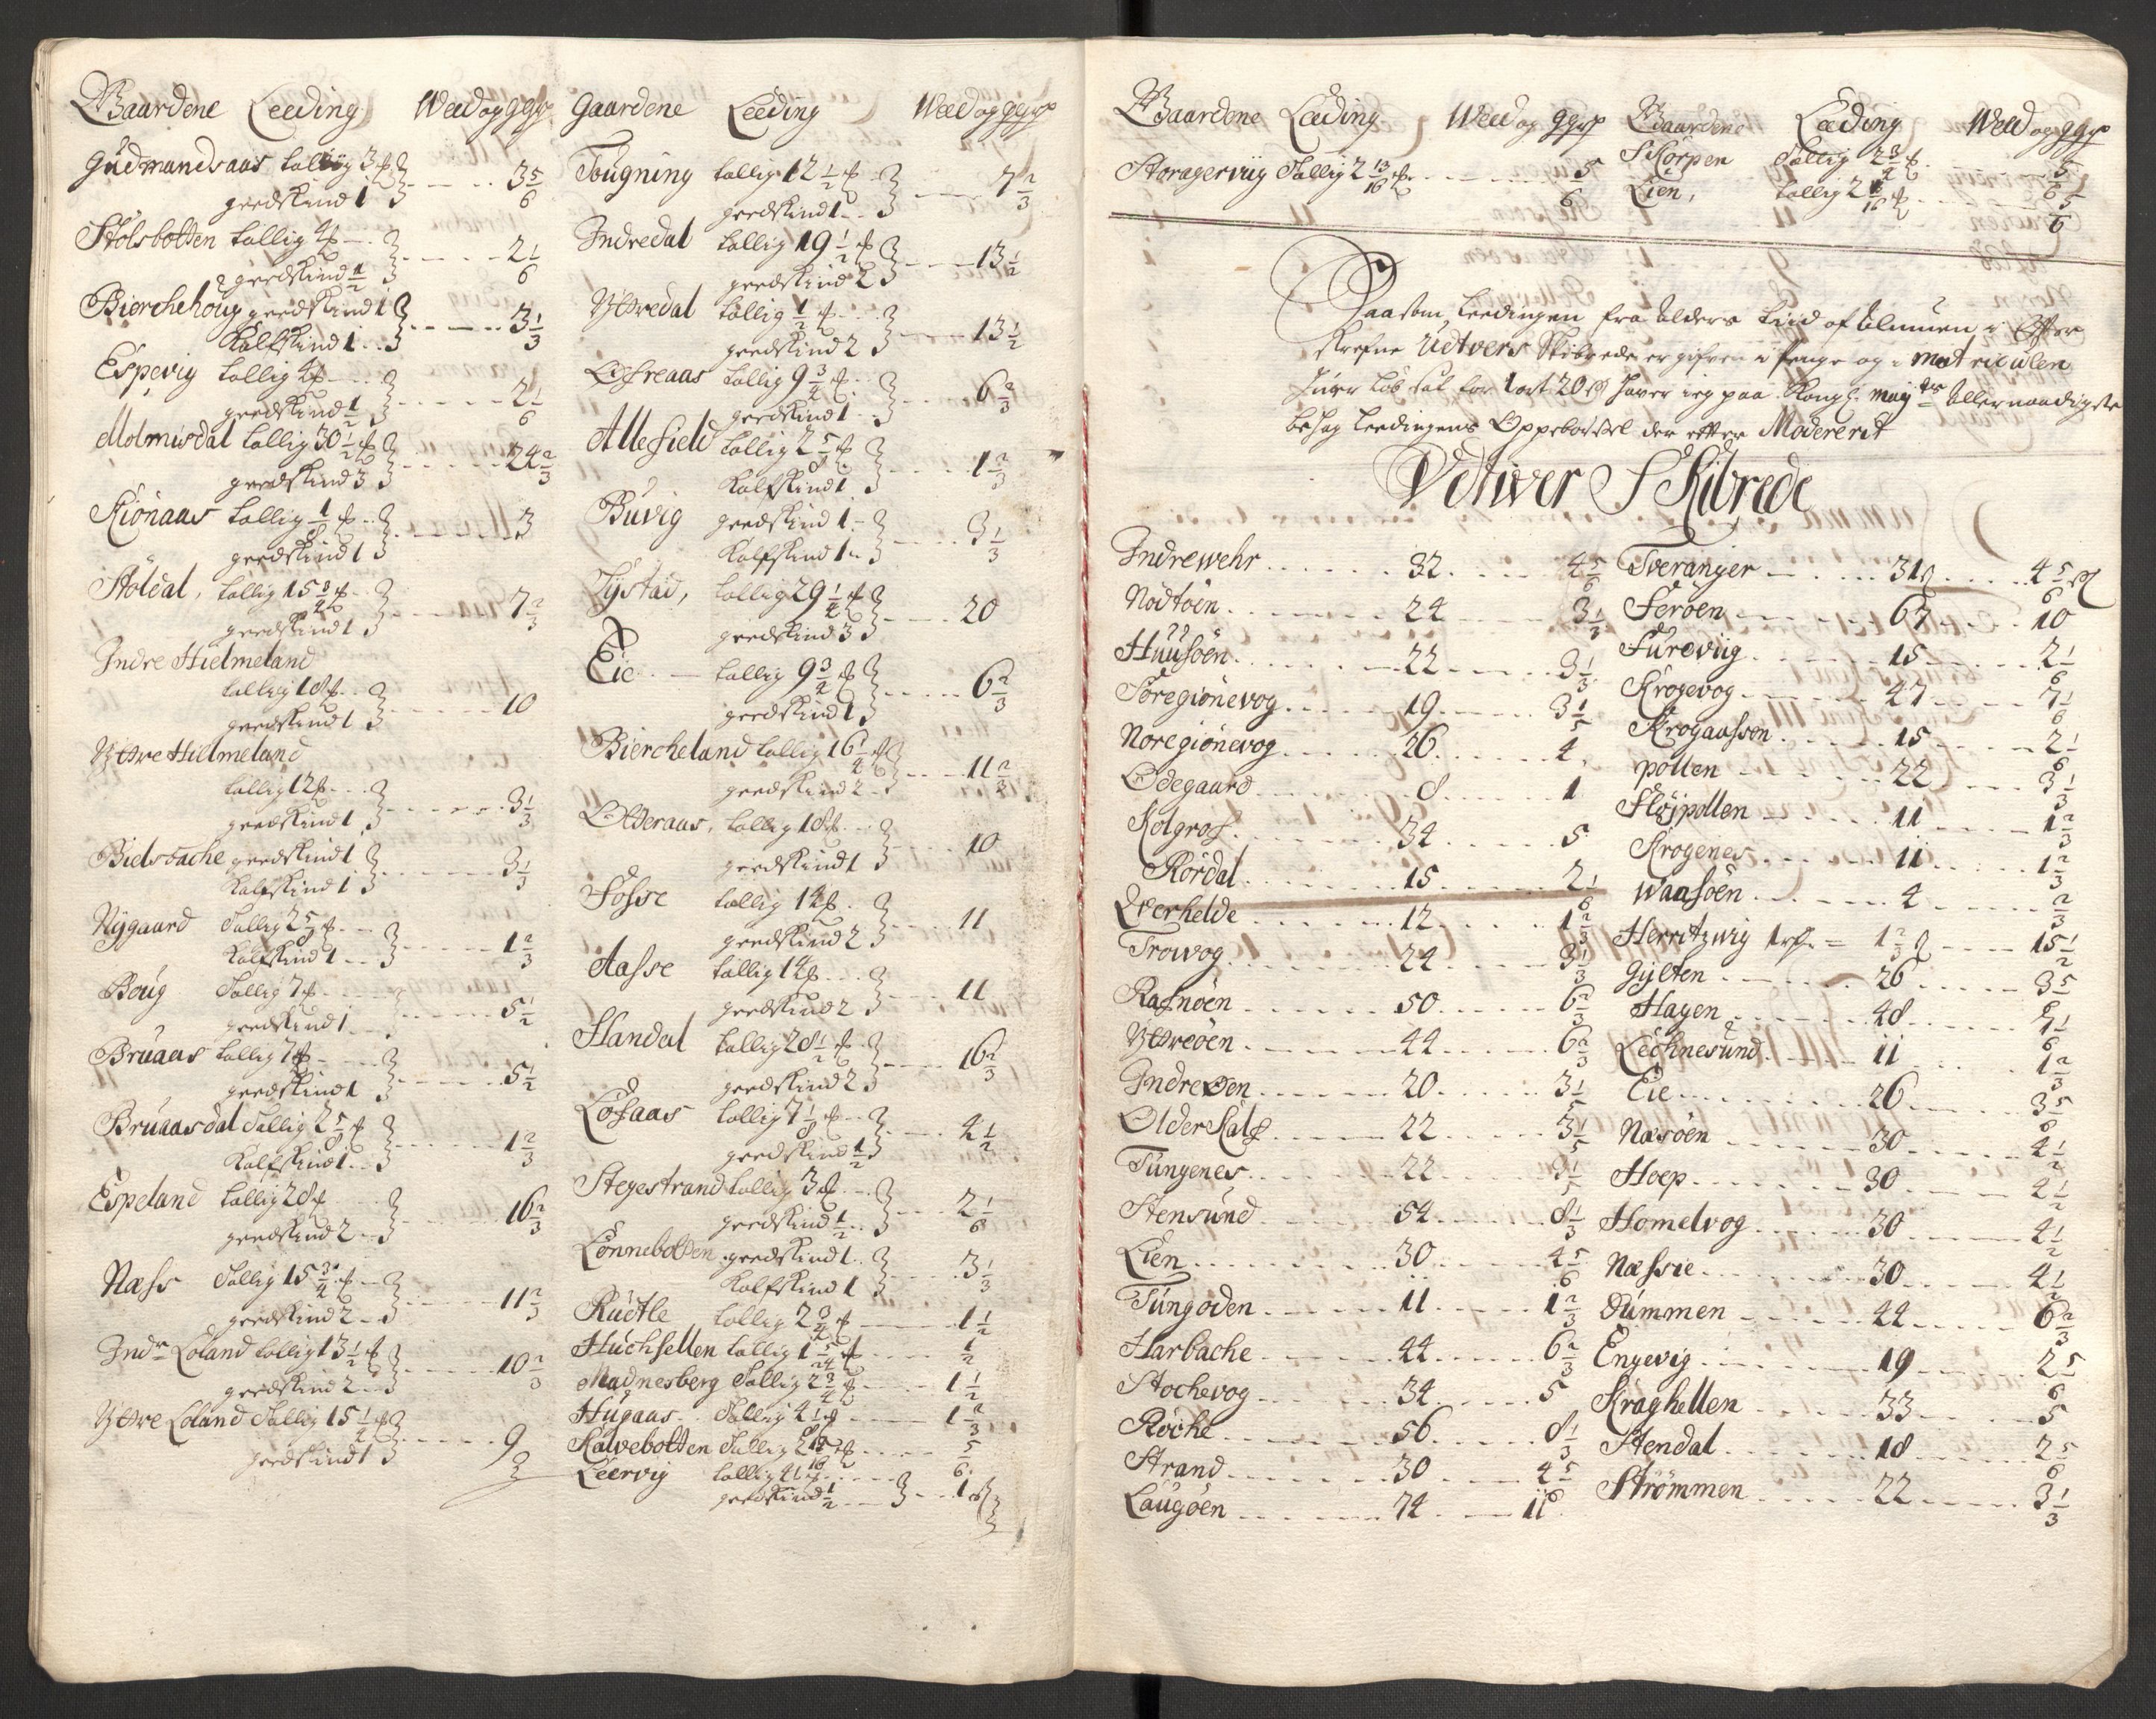 Gaardene Leeding Weed og ggrp
Gudmandsaas tallig 3
geedskind 1 3 5/6
Stølsbotten tallig 4
geedskind 1/2 2 1/6
Bierchehoug geedskind 1
Kalfskind 1 3 1/3
Espevig tallig 4
geedskind 1/2 2 1/6
Molmisdal tallig 30 1/2
geedskind 3 24 2/3
Kiönaas tallig 1/8
geedskind 1 3
Støldal, tallig 15 3/4
geedskind 1 7 2/3
Indre Hielmeland
tallig 18
geedskind 1 10
Yttre Hielmeland
tallig 12
geedskind 1 3 1/3
Bielsbache geedskind 1
Kalfskind 1 3 1/3
Nygaard Tallig 2 5/8
Kalfskind 1 1 2/3
Boug Tallig 7
geedskind 1 5 1/2
Bruaas tallig 7
geedskind 1 5 1/2
Bruaasdal Tallig 2 5/8
Kalfskind 1 1 2/3
Espeland tallig 28
geedskind 2 16 2/3
Næss Tallig 15 3/4
geedskind 2 11 2/3
Indre Loland tallig 13 1/2
geedskind 2 10 2/3
Yttre Loland Tallig 15 1/4
geedskind 1 9
Gaardene Leeding Weed og ggrp
Tougning tallig 12 1/2
geedskind 1 7 2/3
Indredal tallig 19 1/2
geedskind 2 13 1/2
Yttredal tallig 1/2
geedskind 2 13 1/2
Ofreaas tallig 9 3/4
geedskind 1 6 2/3
Allefield tallig 2 5/8
Kalfskind 1 1 2/3
Buvig geedskind 1
Kalfskind 1 3 1/3
Tystad, tallig 29 1/4
geedskind 3 20
Eie tallig 9 3/4
geedskind 1 6 2/3
Biercheland tallig 16 1/4
geedskind 2 11 2/3
Olderaas, tallig 18
geedskind 1 10
Fosse tallig 14
geedskind 2 11
Aasse tallig 14
geedskind 2 11
Handal tallig 28 1/2
geedskind 2 16 2/3
Løfaas tallig 7 1/8
geedskind 1/2 4 1/2
Stegestrand tallig 3
geedskind 1/2 2 1/6
Lønnebotten geedskind 1
Kalfskind 1 3 1/3
Rudtle tallig 2 3/4 1 1/2
Huchsetten tallig 1 5/24 1/2
Madnesberg Tallig 2 3/4 1 1/2
Hugaas Tallig 4 1/8 1 2/3
Kalvebotten Tallig 2 13/16 5/6
Leervig tallig 4 1/8
geedskind 1/2 1
Gaardene Leeding Weed og ggrp Gaardene Leeding Weed og ggrp
Storagerviig Tallig 2 13/16 5/6 Skorpen Tallig 2 3/4 5/6
Lien, tallig 2 1/16 5/6
Saasom Leedingen fra Alders Tiid af Almuen i Effter
skrefne Udtvers Skibrede er gifven i penge og i matriculen
huer løb sat for 1 ort 20 s haver ieg paa Kongl: may:ts Allernaadigste
behag Leedingens Oppebørsel der effter Modererit
Udtwer Skibrede
Indrewehr 32 4 5/6
Nodtøen 24 3 1/3
Huusøen 22 3 1/3
Søregiønevog 19 3 1/5
Noregiønevog 26 4
Ødegaard 8 1
Kolgrof 34 5
Rørdal 15 2 1/6
Qverhelde 12 1 2/3
Trowog 24 3 1/3
Rafnøen 50 6 2/3
Yttreøen 44 6 2/3
Indreøen 20 3 1/5
Olderkalf 22 3 1/5
Tungenes 22 3 1/5
Stensund 54 8 1/3
Lien 30 4 5/6
Tungoden 11 1 2/3
Harbache 44 6 2/3
Stochevog 34 5
Røche 56 8 1/3
Strand 30 4 5/6
Laugøen 74 11
Tveranger 31 4 5/6
Ferøen 67 10
Fureviig 15 2 1/6
Krogevog 47 7 1/6
Krogaassen 15 2 1/6
pollen 22 3 1/3
Fløjpollen 11 1 2/3
Krogenes 11 1 2/3
Waasøen 4 2/3
Herritzwig 1 = 1 2/3 15 1/2
Gylten 26 3 5/6
Hagen 48 7 1/6
Lechnesund 11 1 2/3
Eie 26 3 5/6
Næsøen 30 4 1/2
Hoep 30 4 1/2
Homelvog 30 4 1/2
Næssie 30 4 1/2
Dummen 44 6 2/3
Engevig 19 2 5/6
Kraghellen 33 5
Stendal 18 2 5/6
Strømmen 22 3 1/3